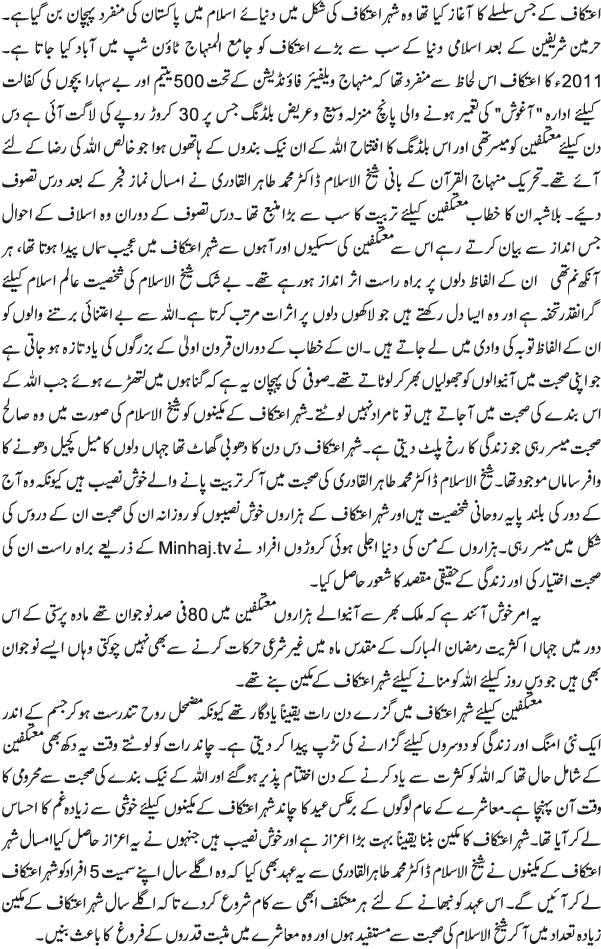 اعتکاف کے جس سلسلے کا آغاز کیا تھا وہ شہر اعتکاف کی شکل میں دنیائے اسلام میں پاکستان کی منفرد پہچان بن گیا ہے۔
حرمین شریفین کے بعد اسلامی دنیا کے سب سے بڑے اعتکاف کو جامع المنہاج ٹاؤن شپ میں آباد کیا جاتا ہے۔
2011ء کا اعتکاف اس لحاظ سے منفرد تھا کہ منہاج ویلفیئر فاؤنڈیشن کے تحت 500 یتیم اور بے سہارا بچوں کی کفالت
کیلئے ادارہ "آغوش" کی تعمیر ہونے والی پانچ منزلہ وسیع و عریض بلڈنگ جس پر 30 کروڑ روپے کی لاگت آئی ہے دس
دن کیلئے معتکفین کو میسر تھی اور اس بلڈنگ کا افتتاح اللہ کے ان نیک بندوں کے ہاتھوں ہوا جو خالص اللہ کی رضا کے لئے
آئے تھے۔ تحریک منہاج القرآن کے بانی شیخ الاسلام ڈاکٹر محمد طاہر القادری نے امسال نماز فجر کے بعد درس تصوف
دیئے۔ بلاشبہ ان کا خطاب معتکفین کیلئے تربیت کا سب سے بڑا منبع تھا۔ درس تصوف کے دوران وہ اسلاف کے احوال
جس انداز سے بیان کرتے رہے اس سے معتکفین کی سسکیوں اور آہوں سے شہر اعتکاف میں عجیب سماں پیدا ہوتا تھا، ہر
آنکھ نم تھی ان کے الفاظ دلوں پر براہ راست اثر انداز ہو رہے تھے۔ بے شک شیخ الاسلام کی شخصیت عالم اسلام کیلئے
گرانقدر تحفہ ہے اور وہ ایسا دل رکھتے ہیں جو لاکھوں دلوں پر اثرات مرتب کرتا ہے۔ اللہ سے بے اعتنائی برتنے والوں کو
ان کے الفاظ توبہ کی وادی میں لے جاتے ہیں۔ ان کے خطاب کے دوران قرون اولیٰ کے بزرگوں کی یاد تازہ ہو جاتی ہے
جو اپنی صحبت میں آنیوالوں کو جھولیاں بھر کر لوٹاتے تھے۔ صوفی کی پہچان یہ ہے کہ گناہوں میں لتھڑے ہوئے جب اللہ کے
اس بندے کی صحبت میں آ جاتے ہیں تو نامراد نہیں لوٹتے۔ شہر اعتکاف کے مکینوں کو شیخ الاسلام کی صورت میں وہ صالح
صحبت میسر رہی جو زندگی کا رخ پلٹ دیتی ہے۔ شہر اعتکاف دس دن کا دھوبی گھاٹ تھا جہاں دلوں کا میل کچیل دھونے کا
وافر ساماں موجود تھا۔ شیخ الاسلام ڈاکٹر محمد طاہر القادری کی صحبت میں آ کر تربیت پانے والے خوش نصیب ہیں کیونکہ وہ آج
کے دور کی بلند پایہ روحانی شخصیت ہیں اور شہر اعتکاف کے ہزاروں خوش نصیبوں کو روزانہ ان کی صحبت ان کے دروس کی
شکل میں میسر رہی۔ ہزاروں کے من کی دنیا اجلی ہوئی کروڑوں افراد نے Minhaj.tv کے ذریعے براہ راست ان کی
صحبت اختیار کی اور زندگی کے حقیقی مقصد کا شعور حاصل کیا۔
یہ امر خوش آئند ہے کہ ملک بھر سے آنیوالے ہزاروں معتکفین میں 80 فی صد نوجوان تھے مادہ پرستی کے اس
دور میں جہاں اکثریت رمضان المبارک کے مقدس ماہ میں غیر شرعی حرکات کرنے سے بھی نہیں چوکتی وہاں ایسے نوجوان
بھی ہیں جو دس روز کیلئے اللہ کو منانے کیلئے شہر اعتکاف کے مکین بنے تھے۔
معتکفین کیلئے شہر اعتکاف میں گزرے دن رات یقیناً یادگار تھے کیونکہ مضمحل روح تندرست ہو کر جسم کے اندر
ایک نئی امنگ اور زندگی کو دوسروں کیلئے گزارنے کی تڑپ پیدا کر دیتی ہے۔ چاند رات کو لوٹتے وقت یہ دکھ بھی معتکفین
کے شامل حال تھا کہ اللہ کو کثرت سے یاد کرنے کے دن اختتام پذیر ہو گئے اور اللہ کے نیک بندے کی صحبت سے محرومی کا
وقت آن پہنچا ہے۔ معاشرے کے عام لوگوں کے برعکس عید کا چاند شہر اعتکاف کے مکینوں کیلئے خوشی سے زیادہ غم کا احساس
لے کر آیا تھا۔ شہر اعتکاف کا مکین بننا یقیناً بہت بڑا اعزاز ہے اور خوش نصیب ہیں جنہوں نے یہ اعزاز حاصل کیا امسال شہر
اعتکاف کے مکینوں نے شیخ الاسلام ڈاکٹر محمد طاہر القادری سے یہ عہد بھی کیا کہ وہ اگلے سال اپنے سمیت 5 افراد کو شہر اعتکاف
لے کر آئیں گے۔ اس عہد کو نبھانے کے لئے ہر معتکف ابھی سے کام شروع کر دے تا کہ اگلے سال شہر اعتکاف کے مکین
زیادہ تعداد میں آ کر شیخ الاسلام کی صحبت سے مستفید ہوں اور وہ معاشرے میں مثبت قدروں کے فروغ کا باعث بنیں۔